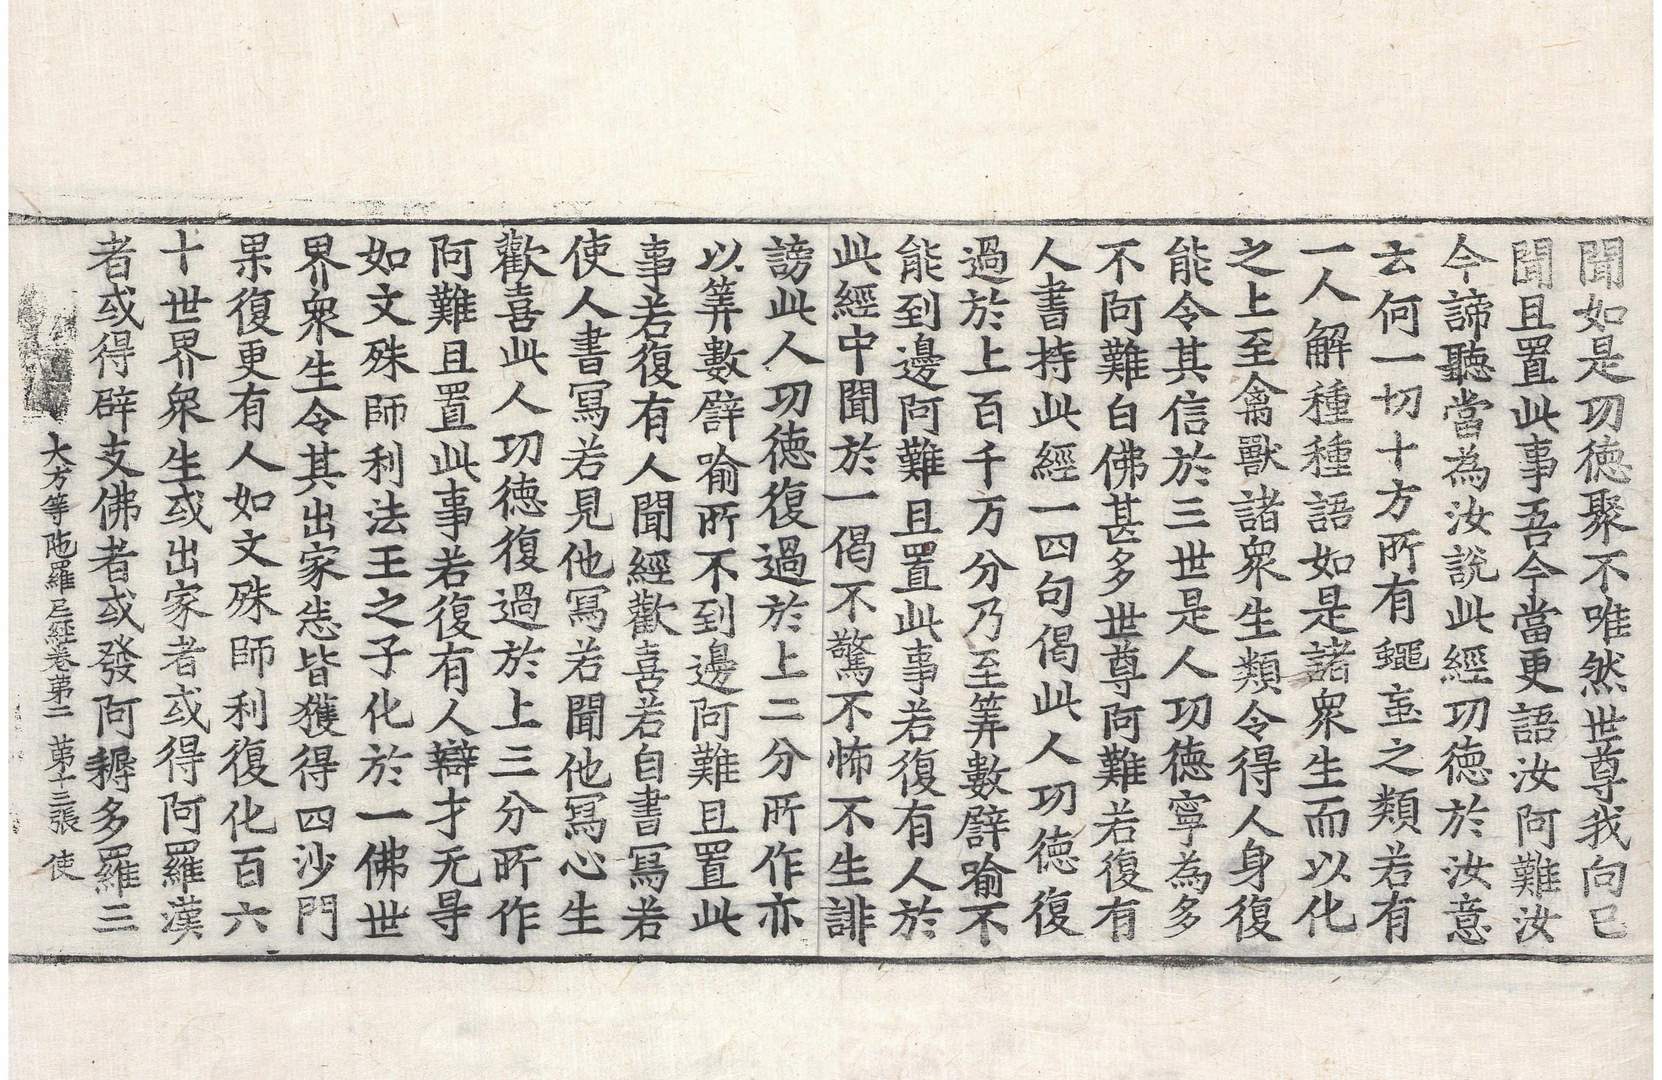 聞如是功德聚不唯然世尊我向已
聞且置此事吾今當更語汝阿難汝
今諦聽當為汝說此經功德於汝意
云何一切十方所有蠅䖟之類若有
一人解種種語如是諸衆生而以化
之上至禽獸諸衆生類令得人身復
能令其信於三世是人功德寧為多
不阿難白佛甚多世尊阿難若復有
人書持此經一四句偈此人功德復
過於上百千万分乃至筭數譬喻不
能到邊阿難且置此事若復有人於
此經中聞於一偈不驚不怖不生誹
謗此人功德復過於上二分所作亦
以筭數譬喻所不到邊阿難且置此
事若復有人聞經歡喜若自書寫若
使人書寫若見他寫若聞他寫心生
歡喜此人功德復過於上三分所作
阿難且置此事若復有人辯才无㝵
如文殊師利法王之子化於一佛世
界衆生令其出家悉皆獲得四沙門
果復更有人如文殊師利復化百六
十世界衆生或出家者或得阿羅漢
者或得辟支佛者或發阿耨多羅三
大方等陁羅尼經卷苐二 苐十三張 使